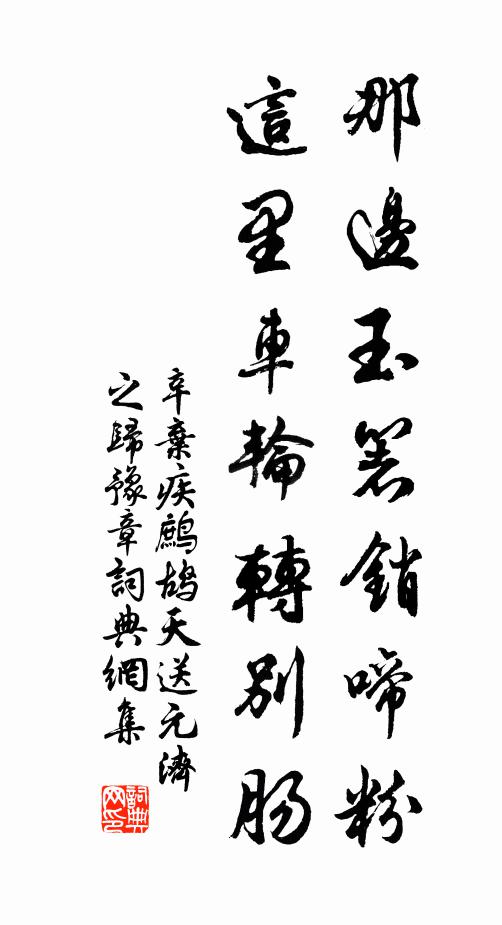 那邊玉箸銷啼粉
這里車輪轉別腸
辛棄疾鷓鴣天送元濟
之歸豫章詞典網集
詞典網印